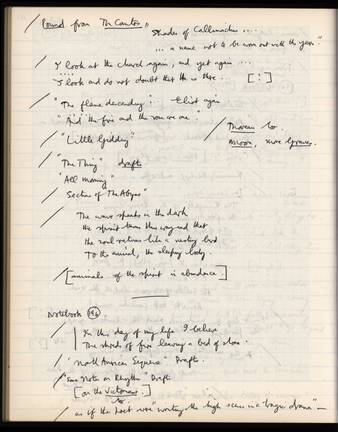 Pound from The Cantos
Shades of Callimachus ...
... a name not to be worn out with the years"
I look at the church again, and yet again ...
I look and do not doubt that He is there. [:]
"The flame descending": Eliot again
"And the fire and the rose are one."
"Little Gidding"
Thoreau to
moon, more
"The Thing" drafts
"All morning"
Section of The Abyss"
The wave speaks in the dark
the spirit turns this way and that
the soul returns like a nesting bird
To the animal, the sleeping body.
[animals of the spirit in abundance]
Notebook 196
In this day of my life I believe
The shreds of fire leaving a bed of stone.
"North American Sequence" Draft.
"Some Notes on Rhythm" Draft
[on the Victorians.]
as if the poet were writing the high scene in a tragic drama"—